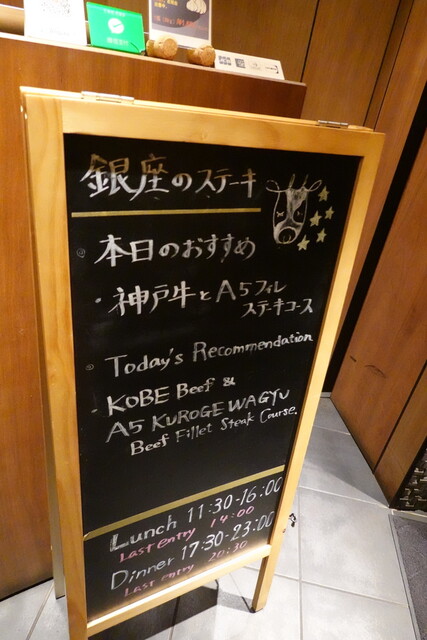 銀座のステーキ
本日のおすすめ
・神戸牛とA5フィレ
ステーキコース
Today's Recommendation
・KOBE Beef &
A5 KUROGE WAGYU
Beef Fillet Steak Course.
Lunch 11:30-16:00
Last entry 14:00
Dinner 17:30-23:00
Last entry 20:30